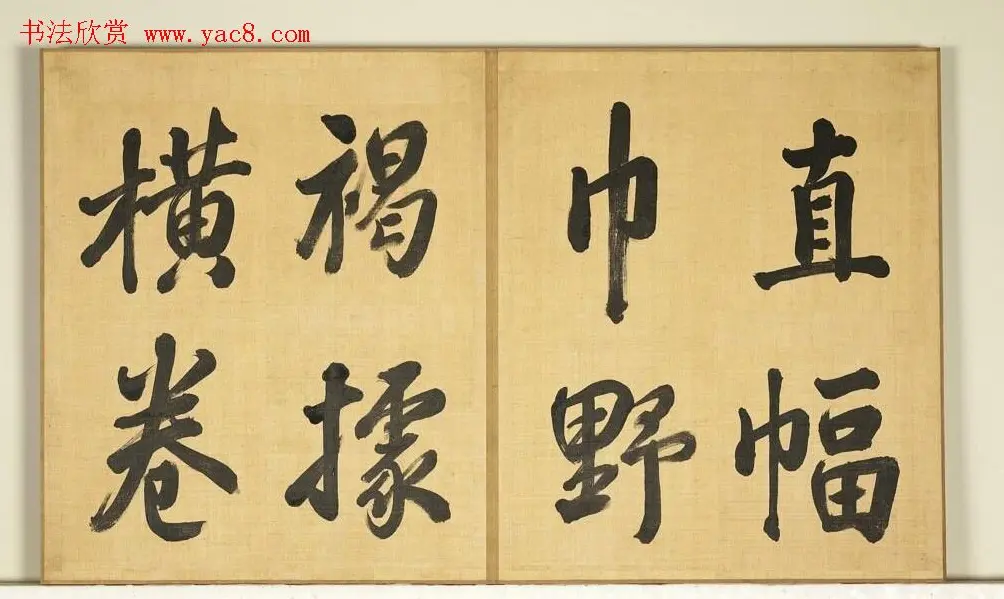 书法欣赏 www.yac8.com
直幅
巾野
褐據
橫卷